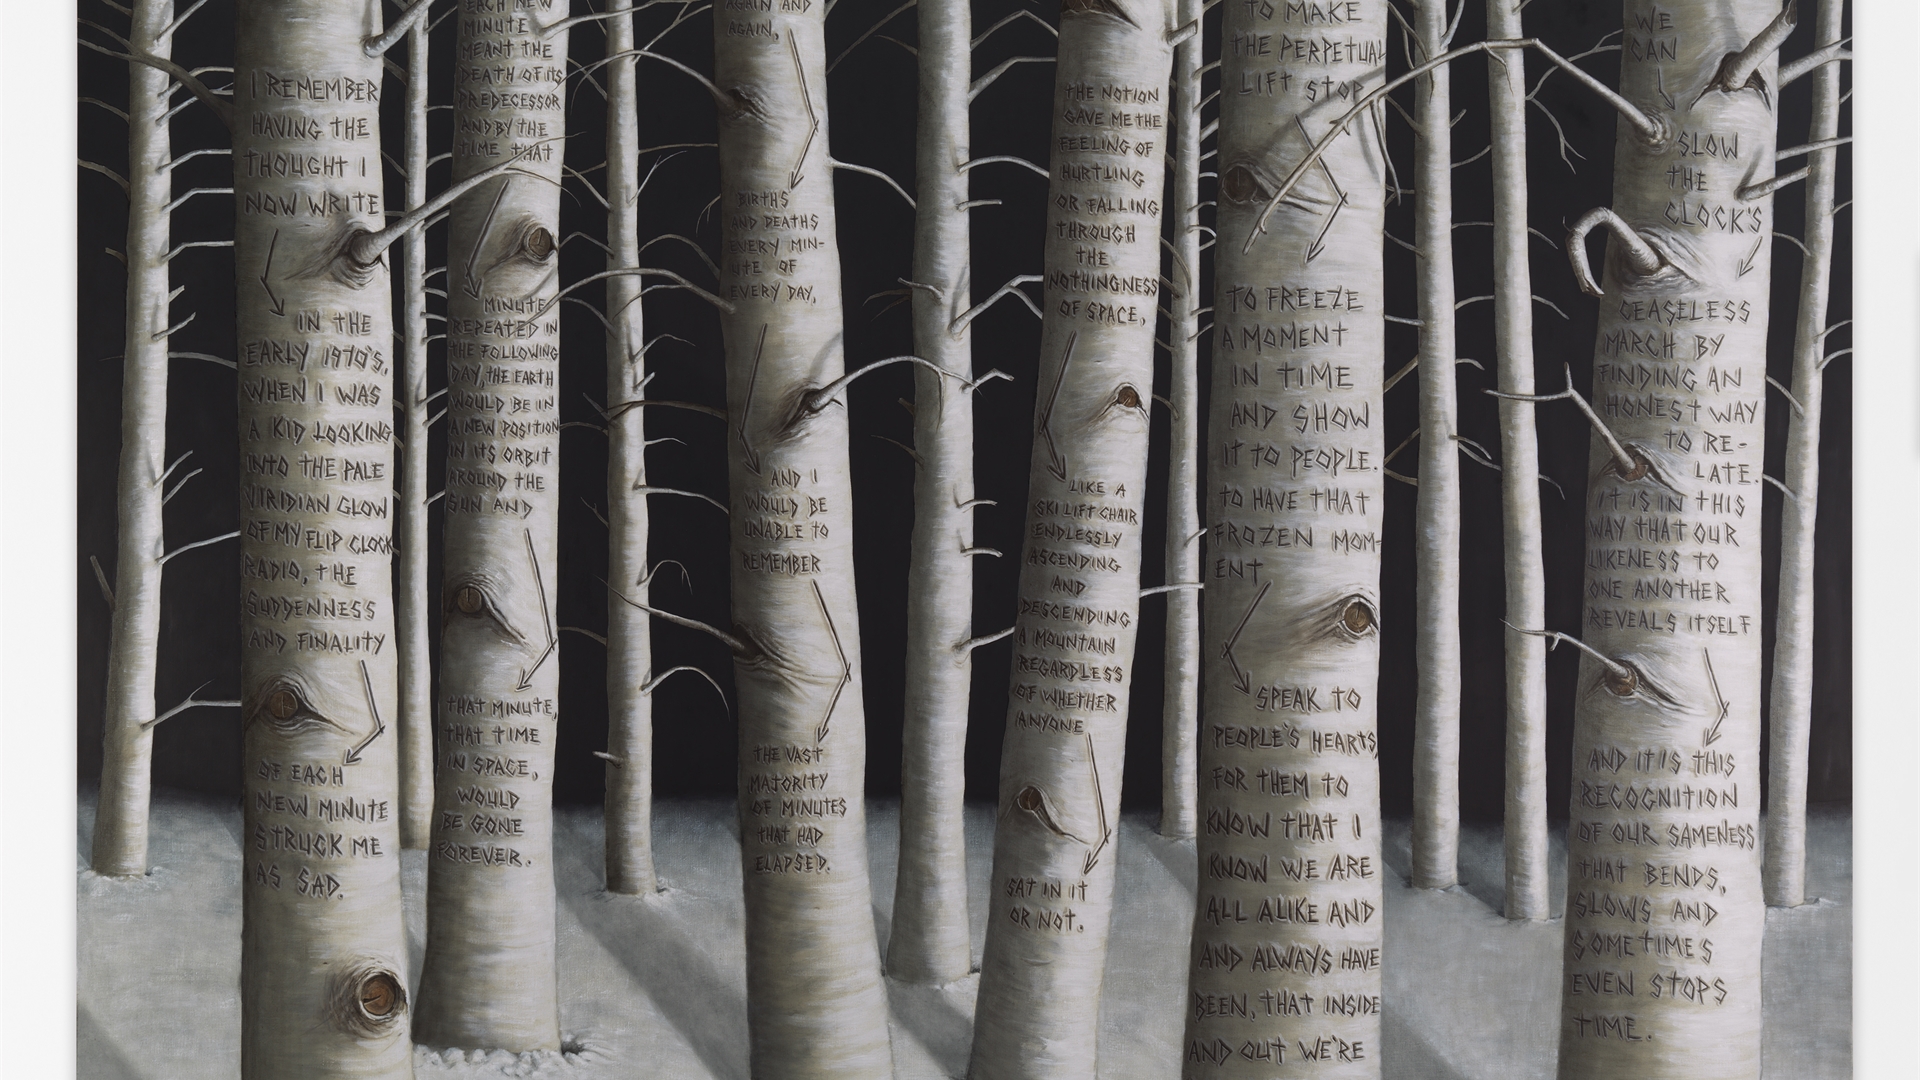 I REMEMBER
HAVING THE
THOUGHT I
NOW WRITE
IN THE
EARLY 1970'S,
WHEN I WAS
A KID LOOKING
INTO THE PALE
VIRIDIAN GLOW
OF MY FLIP CLOCK
RADIO, THE
SUDDENNESS
AND FINALITY
OF EACH
NEW MINUTE
STRUCK ME
AS SAD.
EACH NEW
MINUTE
MEANT THE
DEATH OF ITS
PREDECESSOR
AND BY THE
TIME THAT
MINUTE
REPEATED IN
THE FOLLOWING
DAY, THE EARTH
WOULD BE IN
A NEW POSITION
IN ITS ORBIT
AROUND THE
SUN AND
THAT MINUTE,
THAT TIME
IN SPACE,
WOULD
BE GONE
FOREVER.
AGAIN AND
AGAIN,
BIRTHS
AND DEATHS
EVERY MIN-
UTE OF
EVERY DAY,
AND I
WOULD BE
UNABLE TO
REMEMBER
THE VAST
MAJORITY
OF MINUTES
THAT HAD
ELAPSED.
THE NOTION
GAVE ME THE
FEELING OF
HURTLING
OR FALLING
THROUGH
THE
NOTHINGNESS
OF SPACE,
LIKE A
SKI LIFT CHAIR
ENDLESSLY
ASCENDING
AND
DESCENDING
A MOUNTAIN
REGARDLESS
OF WHETHER
ANYONE
SAT IN IT
OR NOT.
TO MAKE
THE PERPETUAL
LIFT STOP
TO FREEZE
A MOMENT
IN TIME
AND SHOW
IT TO PEOPLE.
TO HAVE THAT
FROZEN MOM-
ENT
SPEAK TO
PEOPLE'S HEARTS,
FOR THEM TO
KNOW THAT I
KNOW WE ARE
ALL ALIKE AND
AND ALWAYS HAVE
BEEN, THAT INSIDE
AND OUT WE'RE
WE
CAN
SLOW
THE
CLOCK'S
CEASELESS
MARCH BY
FINDING AN
HONEST WAY
TO RE-
LATE.
IT IS IN THIS
WAY THAT OUR
LIKENESS TO
ONE ANOTHER
REVEALS ITSELF
AND IT IS THIS
RECOGNITION
OF OUR SAMENESS
THAT BENDS,
SLOWS AND
SOMETIMES
EVEN STOPS
TIME.